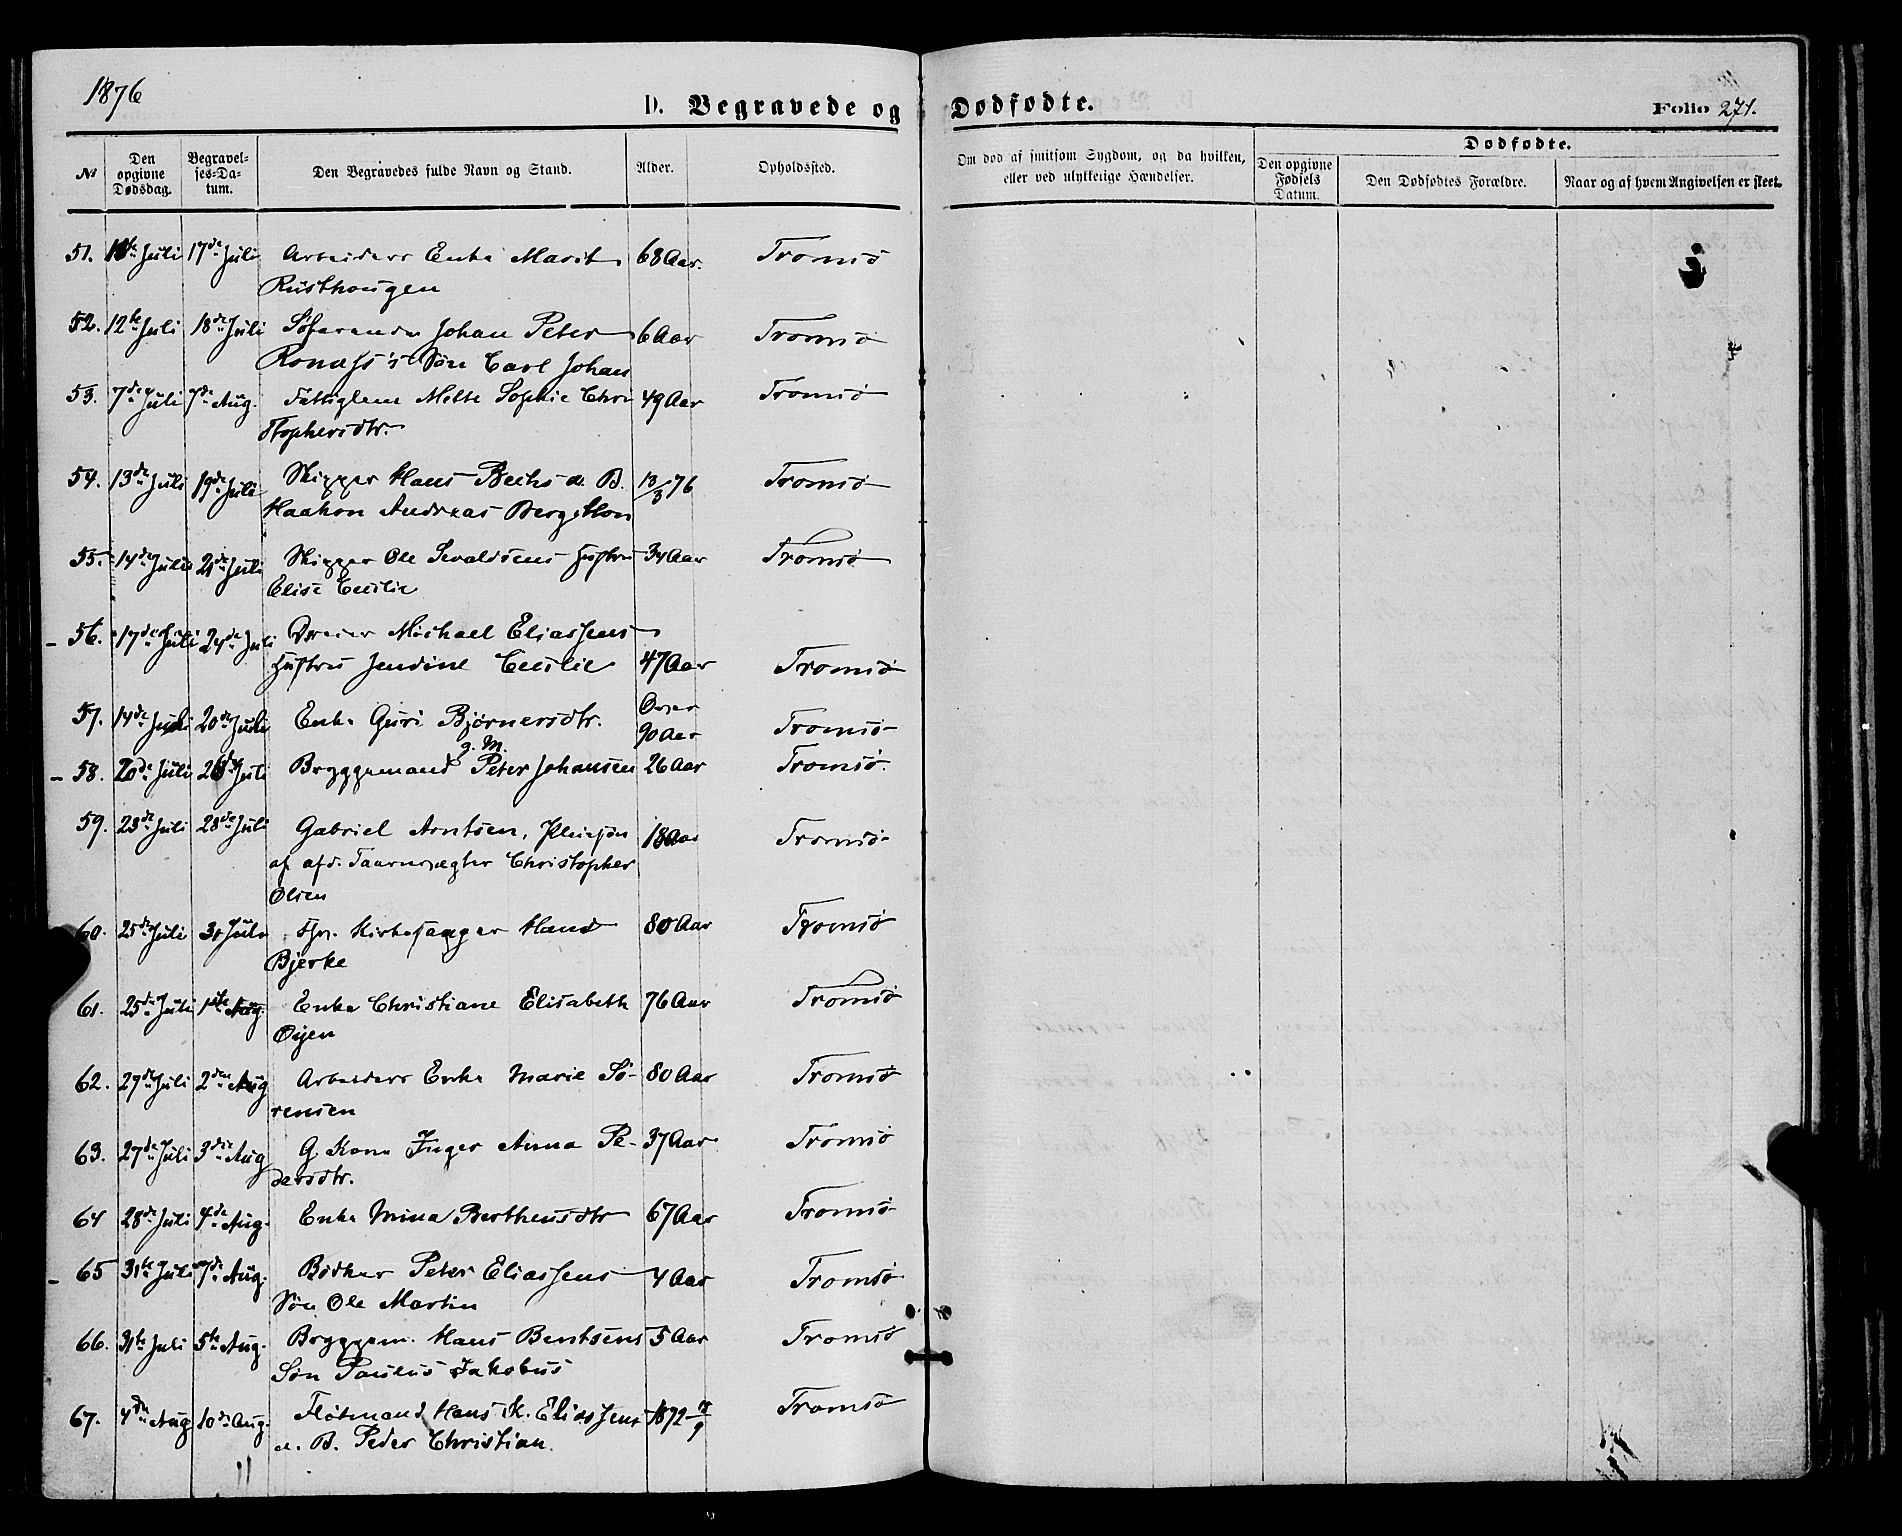 1876
D. Begravede og Dødfødte.
Folio 271.
№
Den opgivne Dødsdag.
Begravelses-Datum.
Den Begravedes fulde Navn og Stand.
Alder.
Opholdssted.
Om død af smitsom Sygdom, og da hvilken, eller ved ulykkelige Hændelser.
Dødfødte.
Den opgivne Fødsels Datum.
Den Dødfødtes Forældre.
Naar og af hvem Angivelsen er skeet.
51. Juli 17de Juli Arbeiders Enke Marit 68 Aar. Tromsø
Rusthaugen
52. 12te Juli 18de Juli Søfarende Johan Peter 6 Aar Tromsø
Søn Carl Johan
53. 7de Juli 7de Aug. Fattiglem Mette Sophie Chri 49 Aar Tromsø
stophersdtr.
54. 13de Juli 19de Juli Skipper Hans Bechs d. B. 13/3 76 Tromsø
Haakon Andreas Bergithon
55. 14de Juli 21de Juli Skipper Ole Sivaldsens Hustru 34 Aar Tromsø
Elise Cecilie
56. 17de Juli 24de Juli Dreier Michael Eliassens
Hustru Jendine Cecilie 47 Aar Tromsø
57. 14de Juli 20de Juli Enke Guri Bjørnersdtr. Over 90 Aar Tromsø
g. M.
58. 20de Juli 26de Juli Bryggemand Peter Johansen 26 Aar Tromsø.
59. 23de Juli 28de Juli Gabriel Arntsen, Pleiesøn 18 Aar Tromsø
af afd. Taarnvægter Christopher
Olsen
60. 25de Juli 31 Juli Kirkesanger Hans 80 Aar Tromsø
Bjerke
61. 25de Juli 1ste Aug. Enke Christiane Elisabeth 76 Aar Tromsø
Øyen
62. 27de Juli 2den Aug Arbeiders Enke Marie Sø- 80 Aar Tromsø
rensen
63. 27de Juli 3die Aug G. Kone Inger Anna Pe- 37 Aar Tromsø
dersdtr.
64 28de Juli 4de Aug. Enke Mina Berthensdtr 67 Aar Tromsø
65 31te Juli 7de Aug. Bødker Peter Eliassens 4 Aar Tromsø
Søn Ole Martin
66. 31te Juli 5te Aug. Bryggem. Hans Bentsens 5 Aar Tromsø
Søn Paulus Jakobus
67. 4de Aug 10de Aug. Fløtmand Hans K. Eliassens 1872 Tromsø
d. B. Peder Christian.